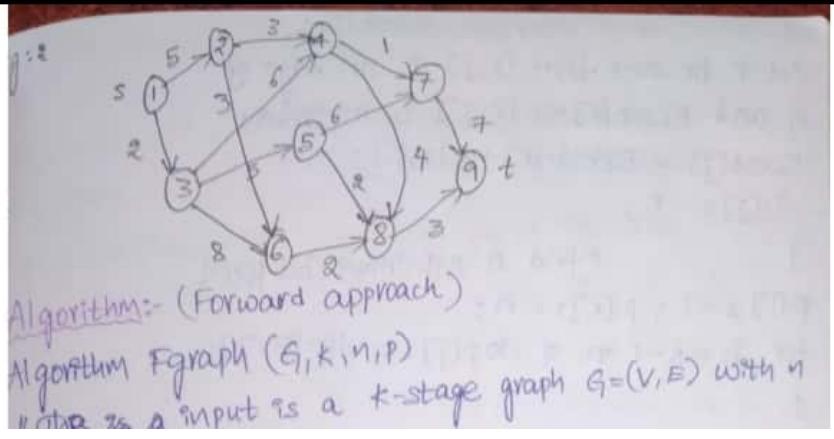 g:2
5 2 3 4 1
S 1 6 7
3 6
2 5 4 7
3 2 9 t
8 6 2 8 3
Algorithm:- (Forward approach)
Algorithm Fgraph (G, k, n, p)
a input is a k-stage graph G=(V, E) with n